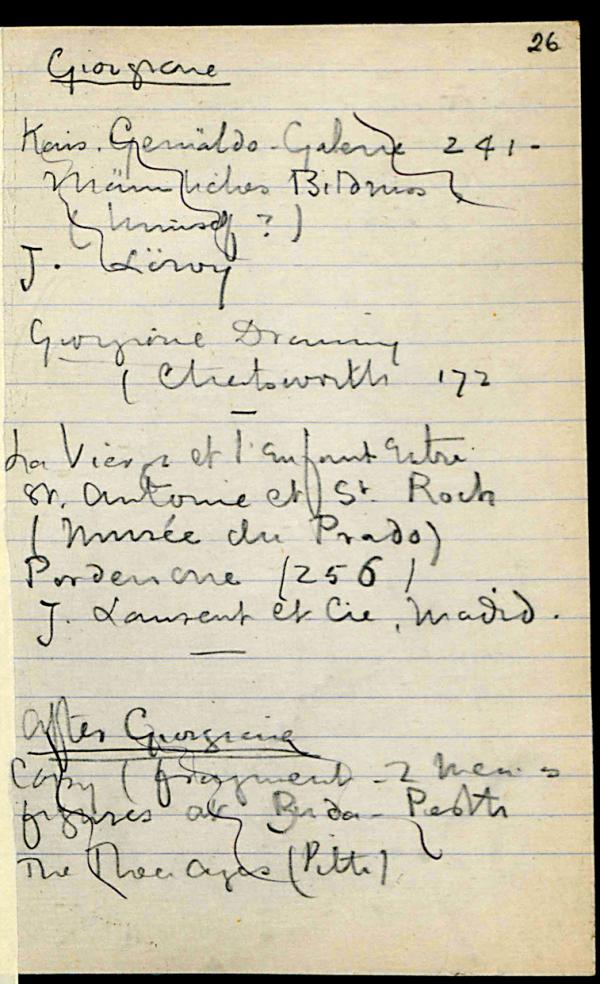 26
Giorgione
Kais. Gemälde-Galerie 241-
Männliches Bildnis
( ?)
J. Löwy
Giorgione Drawing
( Chatsworth 172
La Vierge et l'Enfant Entre
St. Antoine et St Roch
(Musée du Prado)
Pordenone (256)
J. Laurent et Cie, Madrid.
After Giorgione
Copy (fragment - 2 men's
figures at Buda-Pesth
The Three Ages (Pitti)